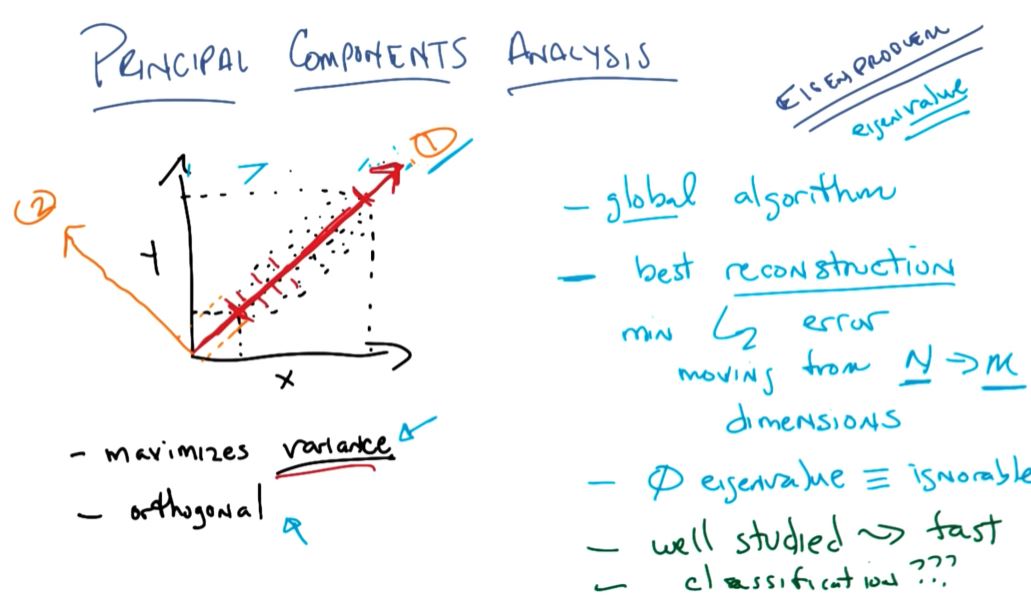 PRINCIPAL COMPONENTS ANALYSIS
EIGENPROBLEM
eigenvalue
1
2
Y
X
- maximizes variance
- orthogonal
- global algorithm
- best reconstruction
min ↳ error
moving from N → M
dimensions
- Ø eigenvalue ≡ ignorable
- well studied ~> fast
- classification ???